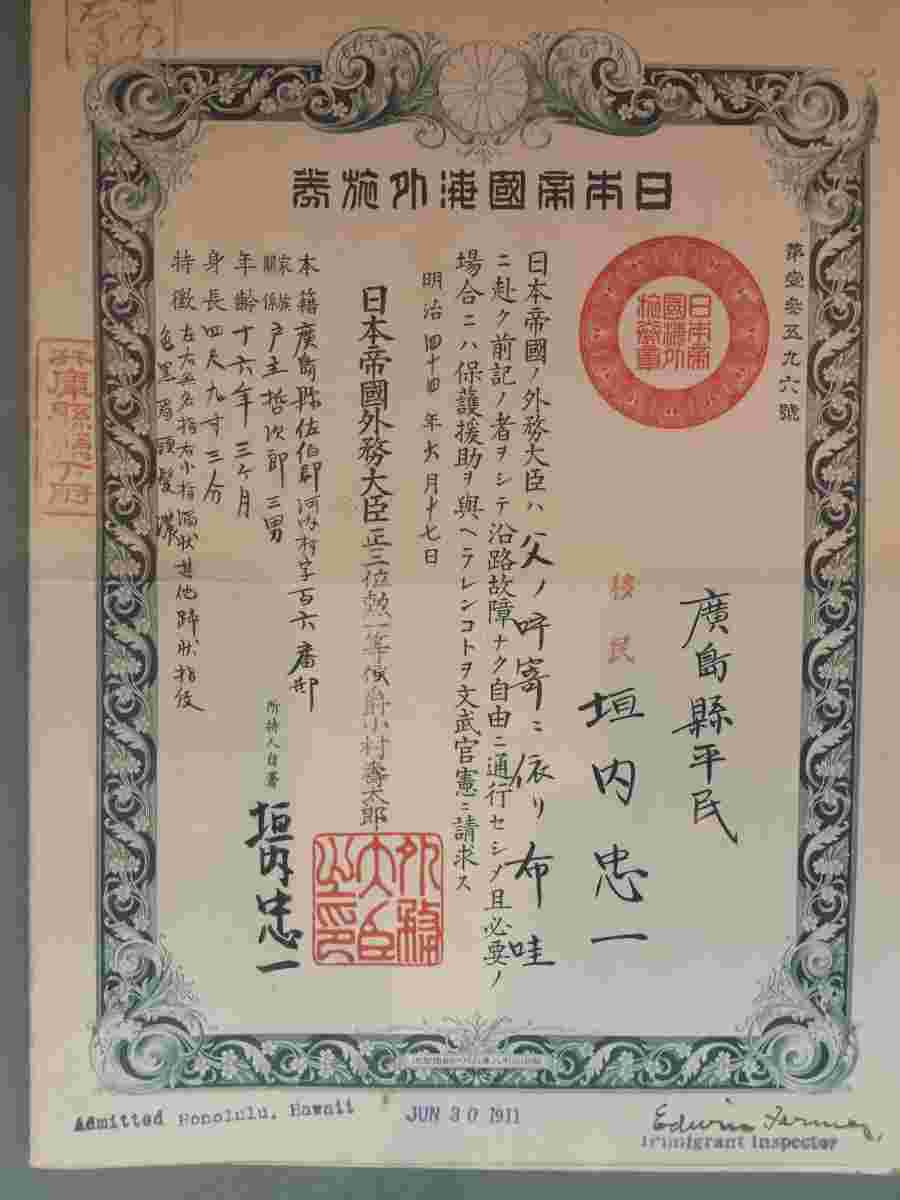 日本帝國海外旅券
第壹叄五九六號
日本帝國海外旅券章
廣島縣平民
移民
垣内忠一
日本帝國ノ外務大臣ハ父ノ呼寄ニ依リ布哇
ニ赴ク前記ノ者ヲシテ沿路故障ナク自由ニ通行セシメ且必要ノ
場合ニハ保護援助ヲ與ヘラレンコトヲ文武官憲ニ請求ス
明治四十四年六月十七日
日本帝國外務大臣正三位勲一等侯爵小村壽太郎
外務大臣之印
本籍廣島縣佐伯郡河内村字百六番邸
家族關係戸主哲次郎三男
年齢十六年三ヶ月
身長四尺九寸三分
特徴左右無名指右小指渦状其他蹄状指紋
色黒眉頭髮濃
所持人自署
垣内忠一
Admitted Honolulu, Hawaii
JUN 30 1911
Edwin Farmer
Immigrant Inspector